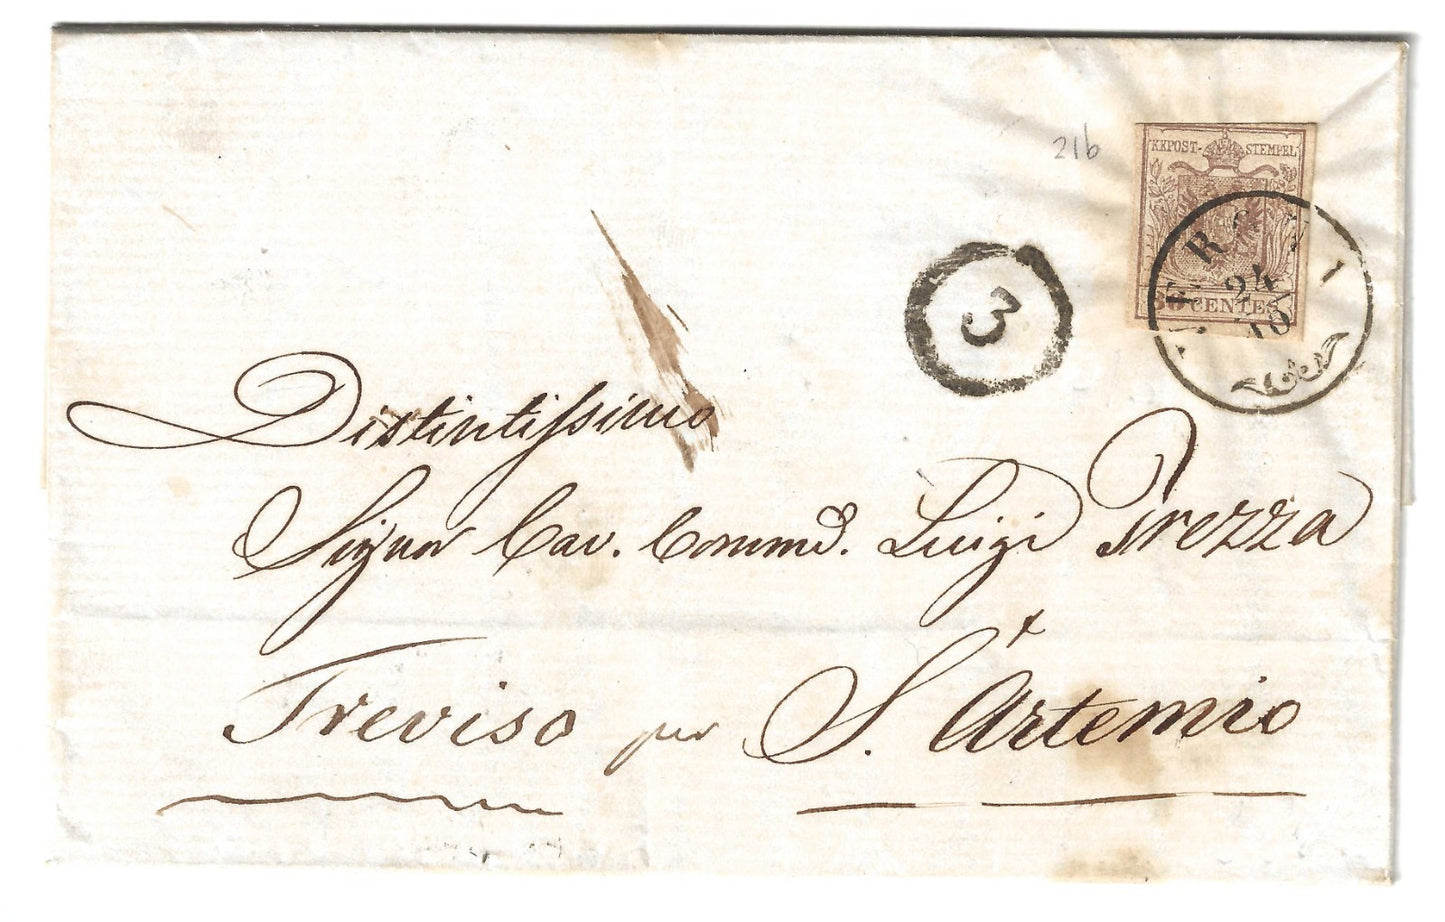 216
KKPOST-STEMPEL
30 CENTES
24
10
3
Distintissimo
Signor Cav. Commd. Luigi Prezza
Treviso per S. Artemio